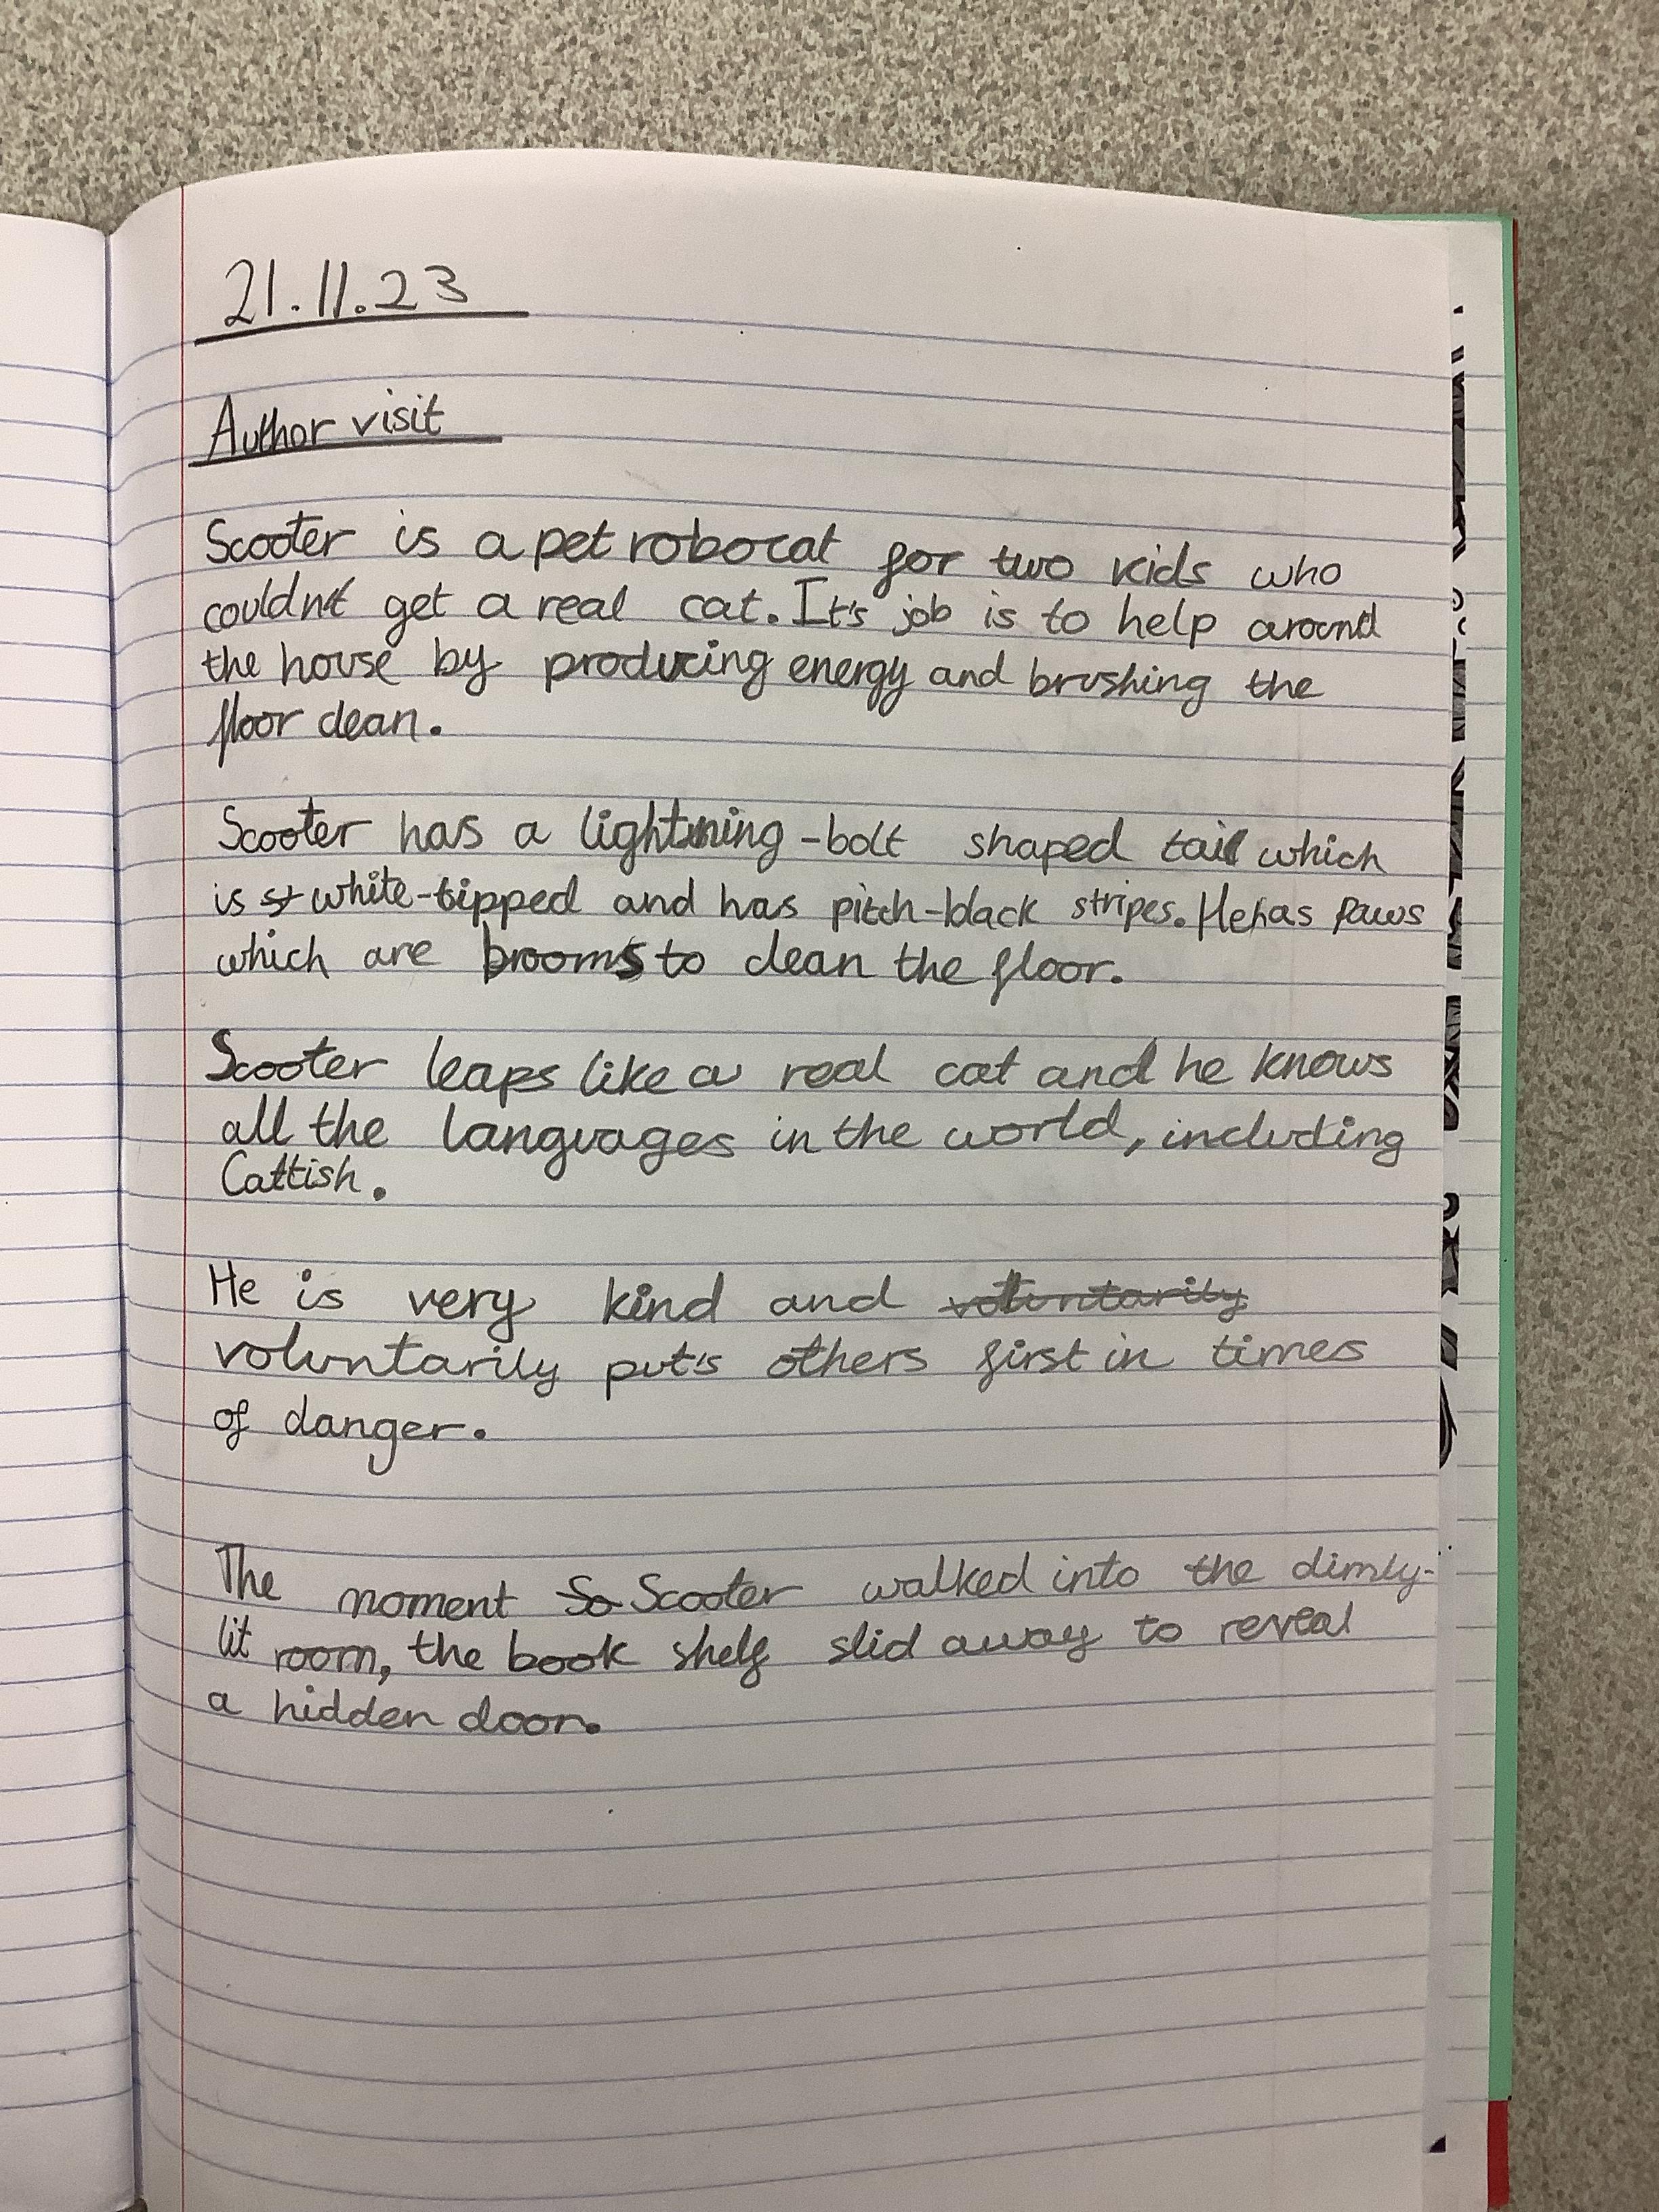 21.11.23
Author visit
Scooter is a pet robocat for two kids who
couldn't get a real cat. It's job is to help around
the house by producing energy and brushing the
floor clean.
Scooter has a lightning-bolt shaped tail which
is st white-tipped and has pitch-black stripes. He has paws
which are brooms to clean the floor.
Scooter leaps like a real cat and he knows
all the languages in the world, including
Cattish.
He is very kind and voluntarily
voluntarily put's others first in times
of danger.
The moment So Scooter walked into the dimly-
lit room, the book shelf slid away to reveal
a hidden door.